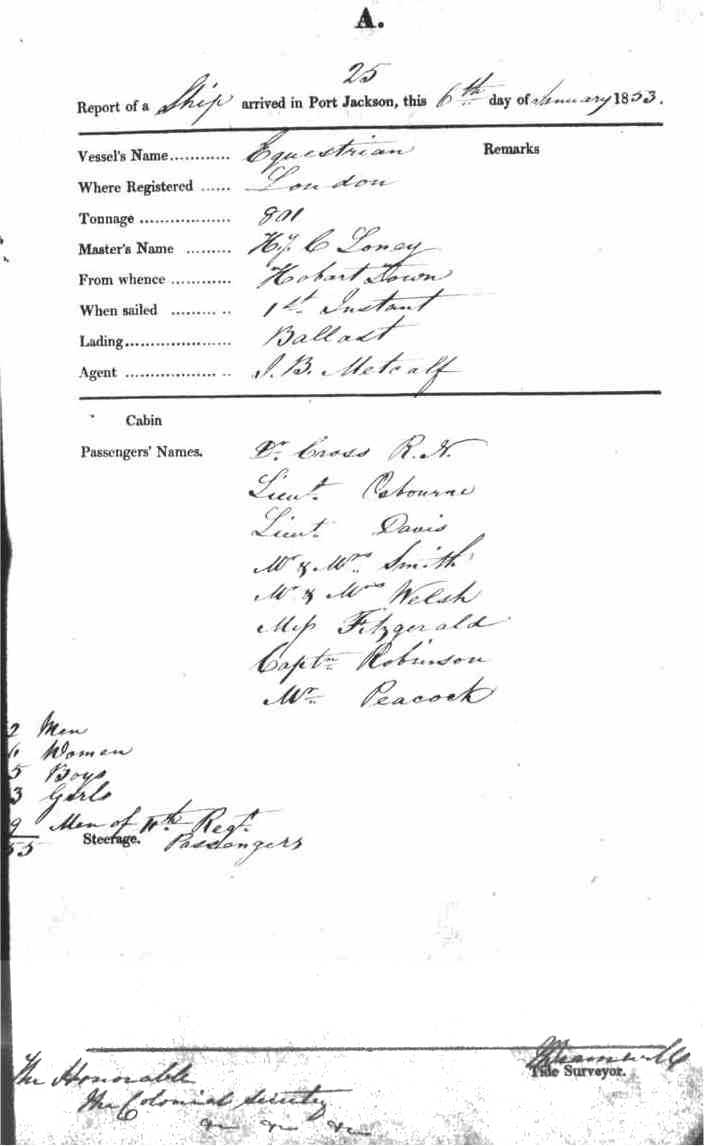 A.
25
Report of a Ship arrived in Port Jackson, this 6th day of January 1853.
Vessel's Name............ Equestrian Remarks
Where Registered ...... London
Tonnage .................. 801
Master's Name ......... Hy. C Loney
From whence ............ Hobart Town
When sailed ......... .. 1st Instant
Lading..................... Ballast
Agent .................. .. J. B. Metcalf
Cabin
Passengers' Names. Dr. Cross R.N.
Lieut. Osbourne
Lieut. Davis
Mr & Mrs. Smith
Mr & Mrs Welsh
Miss Fitzgerald
Captn. Robinson
Mr. Peacock
2 Men
6 Women
5 Boys
3 Girls
9 Men of 11th Regt.
55 Steerage. Passengers
Tide Surveyor.
The Honorable
The Colonial Secretry